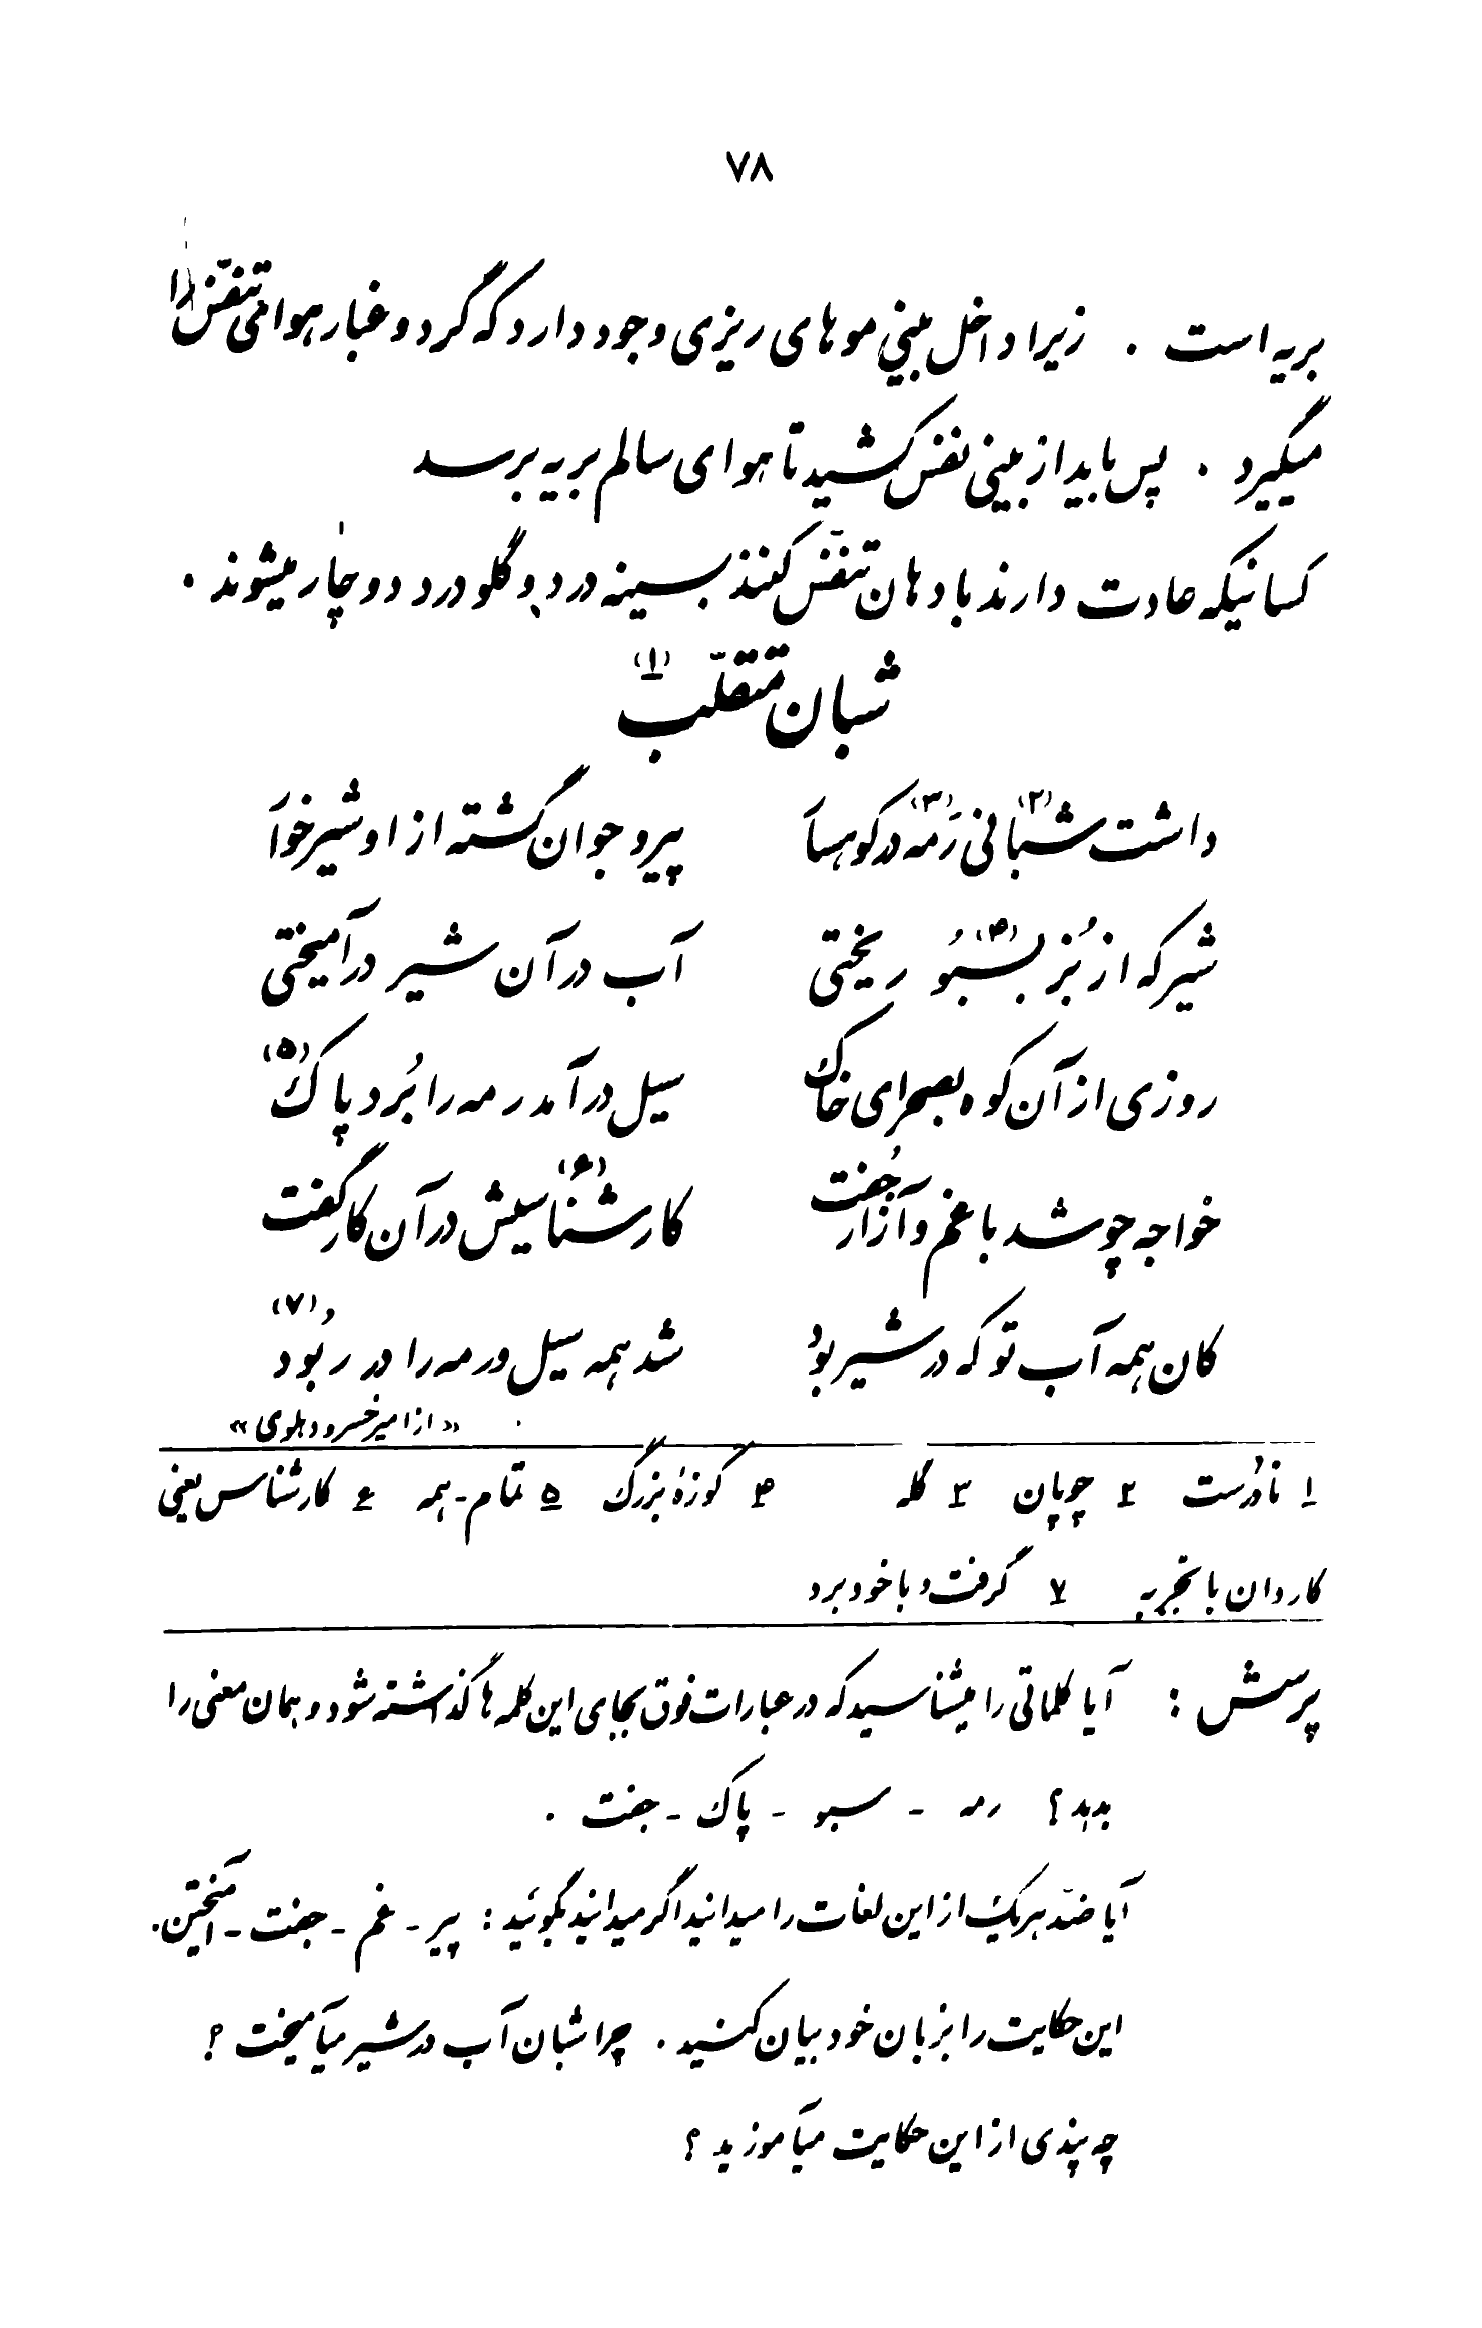 ۷۸
بریه است . زیرا داخل بینی موهای ریزی وجود دارد که گرد و غبار هوای تنفّس را
میگیرد . پس باید از بینی نفس کشید تا هوای سالم بریه برسد
کسانیکه عادت دارند با دهان تنفّس کنند بسینه درد و گلو درد دوچار میشوند .
شبان متقلّب (۱)
داشت شبانی (۲) رَمه (۳) در کوهسار پیر و جوان گشته از او شیر خوار
شیر که از بُز بسَبُو (۴) ریختی آب در آن شیر در آمیختی
روزی از آن کوه بصحرای خاک سیل در آمد رمه را بُرد پاک (۵)
خواجه چو شد با غم و آزار جُفت کارشناسیش (۶) در آن کار گفت
کان همه آب تو که در شیر بود شد همه سیل و رمه را در رُبود (۷)
«از امیر خسرو دهلوی»
۱ نادُرست ۲ چوپان ۳ گله ۴ کوزهٔ بزرگ ۵ تمام - همه ۶ کارشناس یعنی
کاردان با تجربه ۷ گرفت و با خود برد
پرسش : آیا کلماتی را میشناسید که در عبارات فوق بجای این کلمه ها گذاشته شود و همان معنی را
بدهد ؟ رمه - سبو - پاک - جفت .
آیا ضدّ هر یک از این لغات را میدانید اگر میدانید بگوئید : پیر - غم - جفت - آمیختن .
این حکایت را بزبان خود بیان کنید . چرا شبان آب در شیر میآمیخت ؟
چه پندی از این حکایت میآموزید ؟